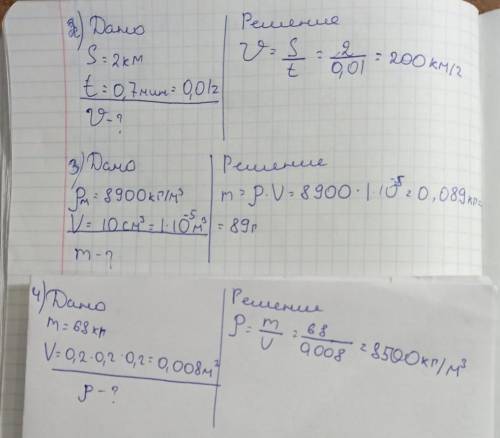 2) Дано
S = 2км
t = 0,7мин = 0,01г
V-?
Решение
V = S/t = 2/0,01 = 200км/г
3) Дано
ρм = 8900кг/м³
V = 10см³ = 1·10⁻⁵м³
m-?
Решение
m = ρ·V = 8900·1·10⁻⁵ = 0,089кг =
= 89г
4) Дано
m = 68кг
V = 0,2·0,2·0,2 = 0,008м³
ρ-?
Решение
ρ = m/V = 68/0,008 = 8500кг/м³